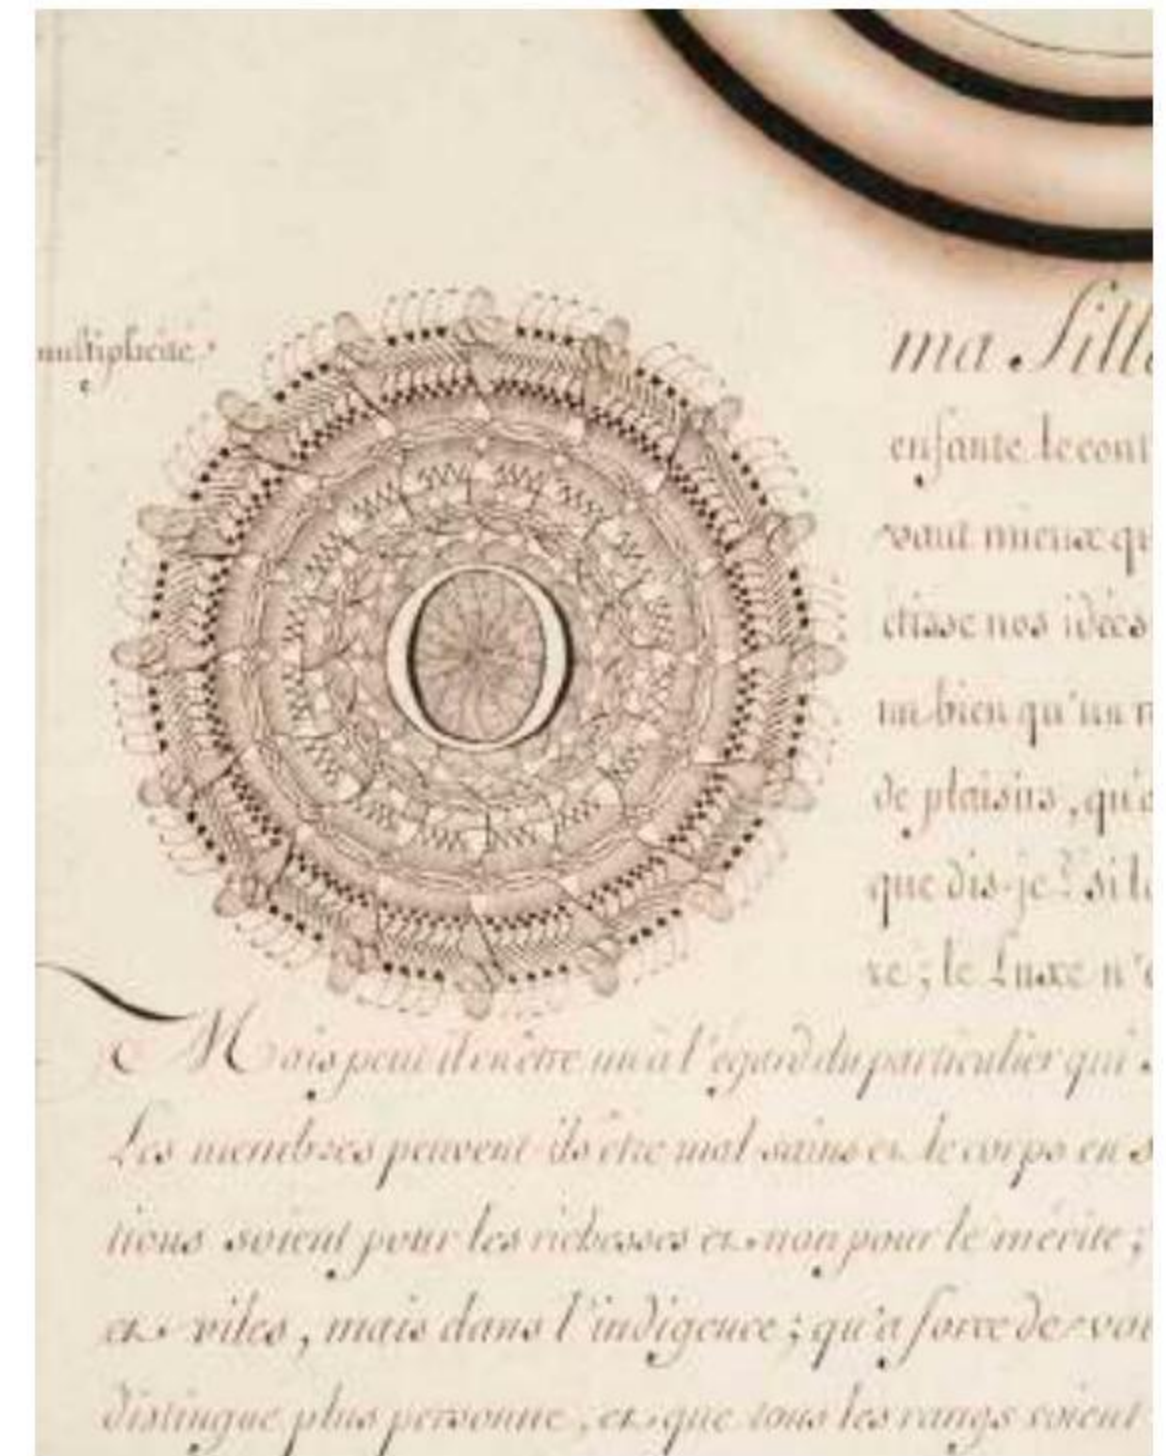 multiplicité.
O ma fille
enfante. le cont
vaut mieux qu
isse nos idées
un bien qu'un
de plaisirs, qu'
que dis-je? si l
re; le Luxe n'
Mais peut il en être un à l'égard du particulier qui
Les membres peuvent-ils être mal sains et le corps en s
tions soient pour les richesses et non pour le mérite;
et viles, mais dans l'indigence; qu'a force de voi
distingue plus personne, et que tous les rangs soient